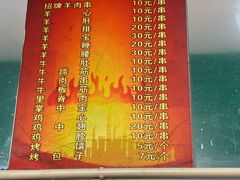 招牌羊肉串 10元/串
羊 心 10元/串
羊 肝 10元/串
羊 排 30元/串
羊 宝 20元/串
羊 鞭 30元/串
羊 腰 20元/串
羊 肚 10元/串
牛 蹄 筋 10元/串
牛 肉 串 10元/串
牛 板 筋 10元/串
里 脊 肉 10元/串
掌 中 宝 10元/串
鸡 心 10元/串
鸡 中 翅 20元/串
5元/个
烤 包 子 7元/个